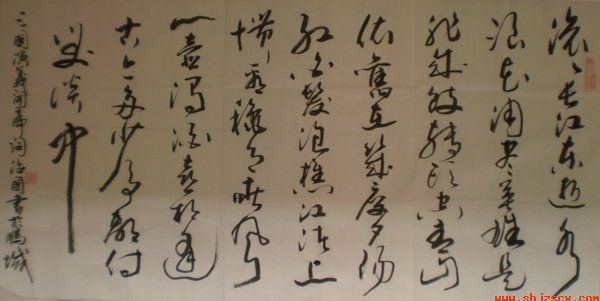 滚々長江东逝水
浪花淘尽英雄是
非成败转头空青山
依舊在幾度夕阳
红白发渔樵江渚上
惯看秋月春风
一壶浊酒喜相逢
古今多少事都付
笑谈中
三國演義開篇词治國書於鵬城
www.shjzscx.com